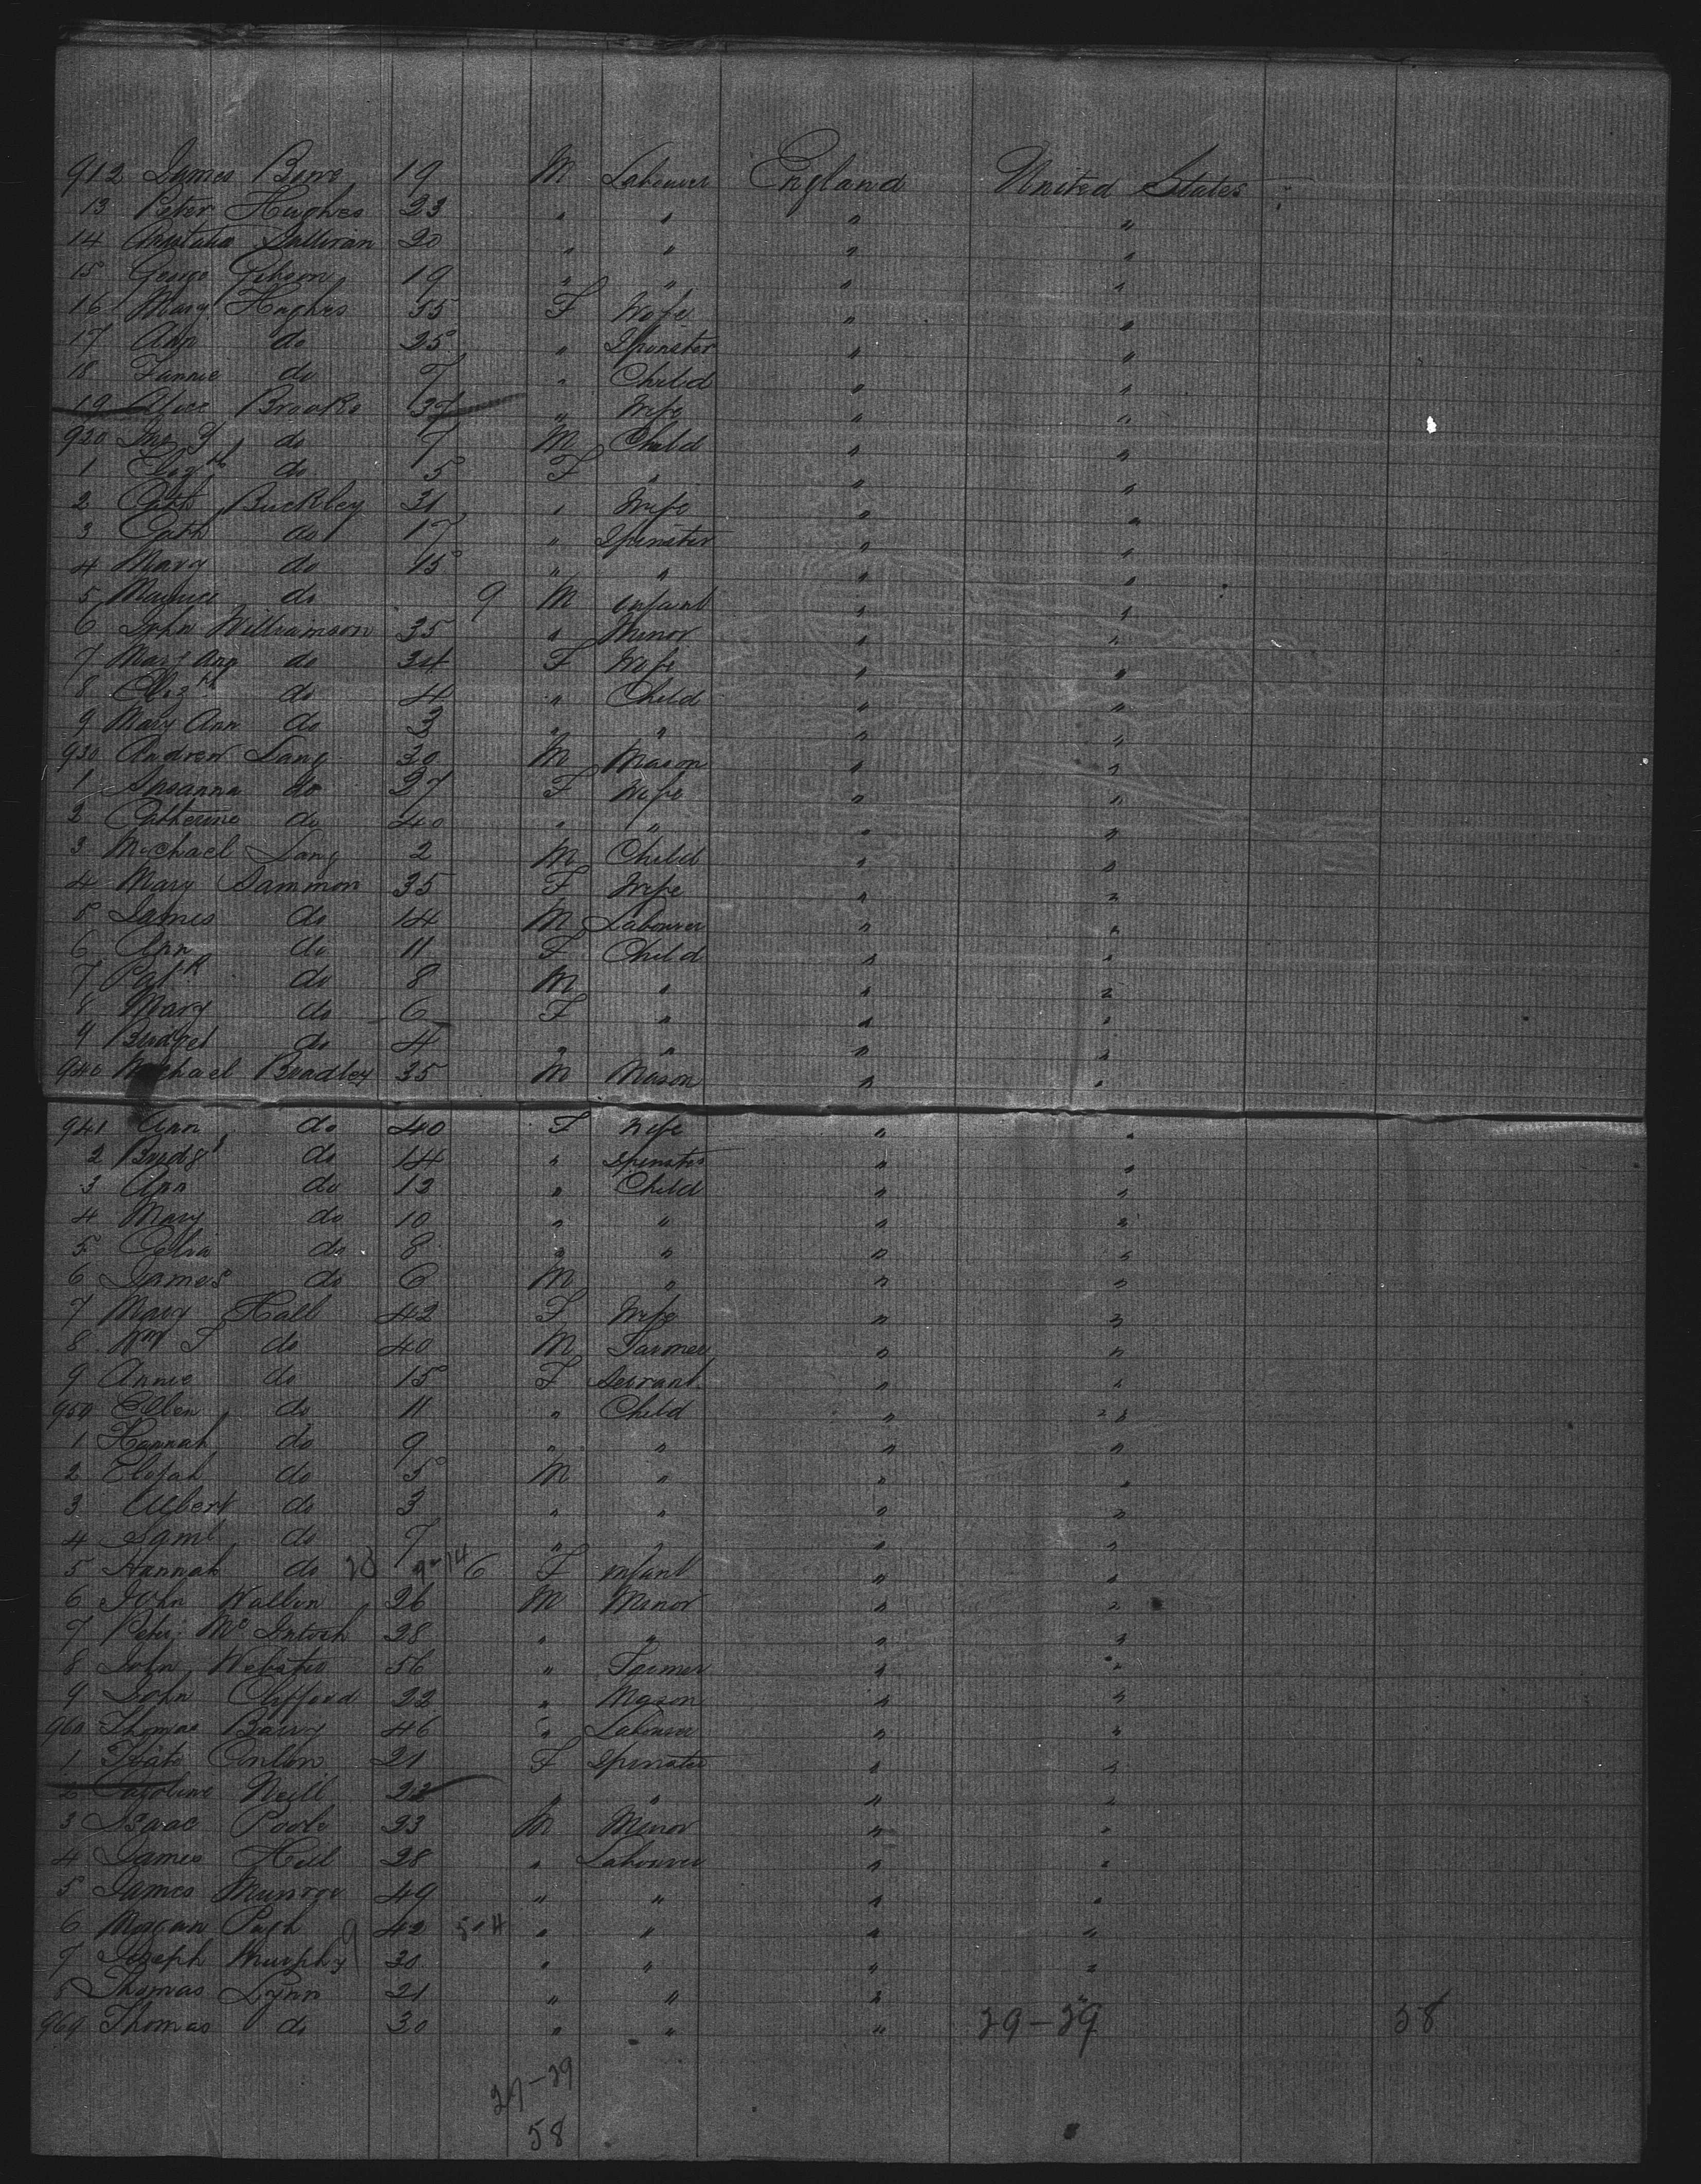 912 James Bowe 19 M Labourer England United States
13 Peter Hughes 23 " " " "
14 Sullivan 20 " " " "
15 George Gibson 19 " " " "
16 Mary Hughes 55 F Wife " "
17 Ann do 25 " Spinster " "
18 Fannie do 7 " Child " "
19 Alice Brooks 37 " Wife " "
920 do 7 M Child " "
1 Elizth do 5 F " " "
2 Cath Buckley 31 " Wife " "
3 Cath do 17 " Spinster " "
4 Mary do 15 " " " "
5 Maurice do 9 M infant " "
6 John Williamson 35 " Minor " "
7 Mary Ann do 34 F Wife " "
8 Elizth do 4 " Child " "
9 Mary Ann do 3 " " " "
930 Andrew Lang 30 M Mason " "
1 Susanna do 27 F Wife " "
2 Catherine do 40 " " " "
3 Michael Lang 2 M Child " "
4 Mary Sammon 35 F Wife " "
5 James do 14 M Labourer " "
6 Ann do 11 F Child " "
7 Patk do 8 M " " "
8 Mary do 6 F " " "
9 Bridget do 4 " " " "
940 Michael Bradley 35 M Mason " "
941 Ann do 40 F Wife " "
2 Bridgt do 14 " Spinster " "
3 Ann do 12 " Child " "
4 Mary do 10 " " " "
5 Celia do 8 " " " "
6 James do 6 M " " "
7 Mary Hall 42 F Wife " "
8 Wm T do 40 M Farmer " "
9 Annie do 15 F Servant " "
950 Ellen do 11 " Child " "
1 Hannah do 9 " " " "
2 Elijah do 5 M " " "
3 Albert do 3 " " " "
4 Saml do 7 " " " "
5 Hannah do 6 F infant " "
6 John Wallin 26 M Minor " "
7 Peter McIntosh 28 " " " "
8 John Webster 56 " Farmer " "
9 John Clifford 22 " Mason " "
960 Thomas Barry 46 " Labourer " "
1 Kate Conlon 21 F Spinster " "
2 Caroline Neill 22 " " " "
3 Isaac Poole 23 M Minor " "
4 James Hill 28 " Labourer " "
5 James Munroe 49 " " " "
6 Morgan Pugh 42 " " " "
7 Joseph Murphy 30 " " " "
8 Thomas Lynn 21 " " " "
969 Thomas do 30 " " " 29-29 58
29-29
58